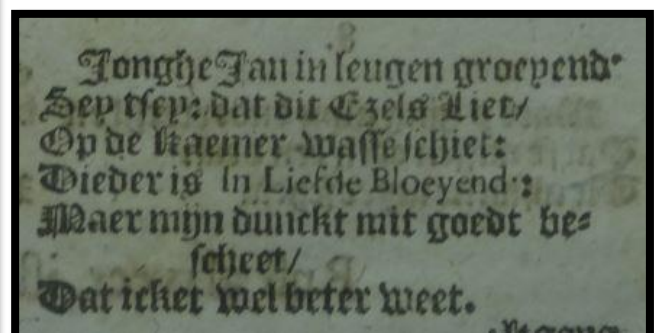 Jonghe Jan in leugen groeyend·
Sey tsey: dat dit Ezels Liet/
Op de kaemer wasse schiet:
Dieder is In Liefde Bloeyend·:
Maer mijn dunckt mit goedt be⸗
scheet/
Dat icket wel beter weet.